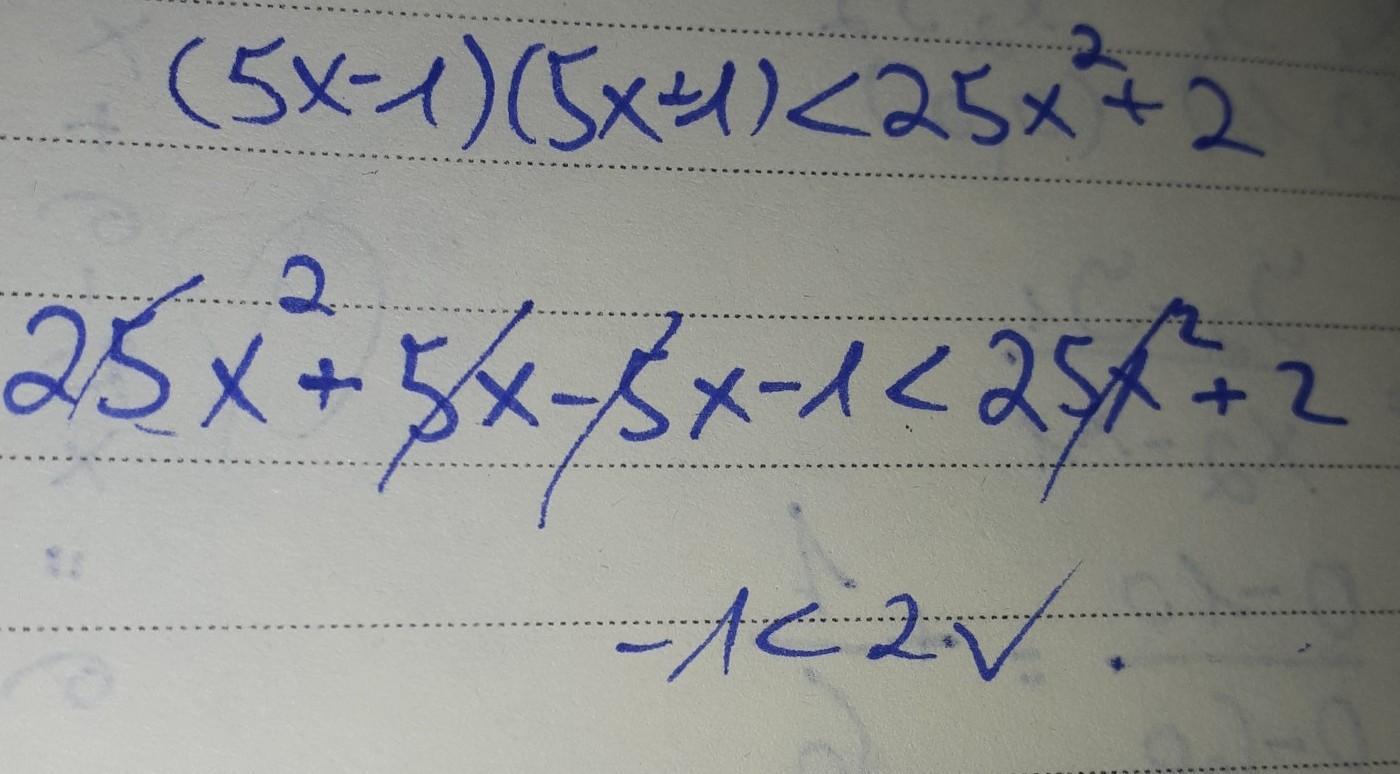 (5x-1)(5x+1)<25x²+2
25x²+5x-5x-1<25x²+2
-1<2.✓.